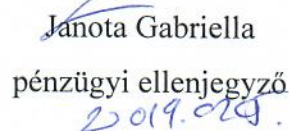 Janota Gabriella
pénzügyi ellenjegyző